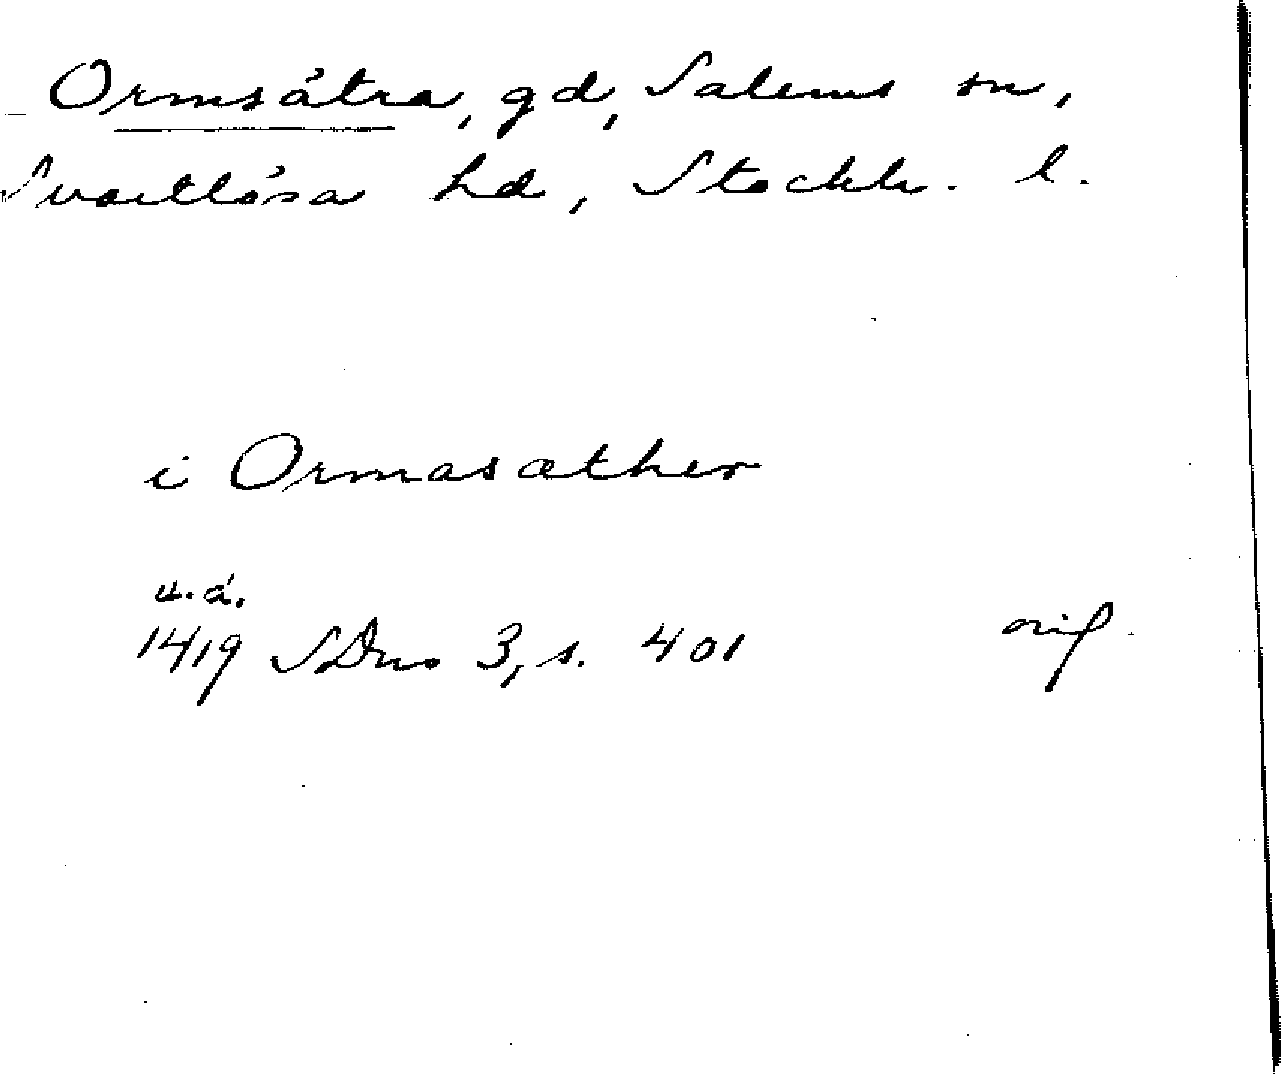 Ormsätra, gd, Salems sn,
Svartlösa hd, Stockh. l.
i Ormasæther
u.å.
1419 SDns 3, s. 401 orig.